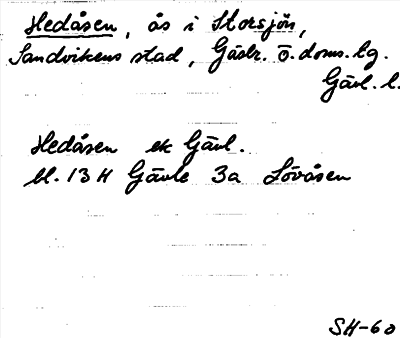 Hedåsen, ås i Storsjön,
Sandvikens stad, Gästr. ö. doms. tg.
Gävl. l.
Hedåsen ek Gävl.
bl. 13 H Gävle 3a Lövåsen
SH-60